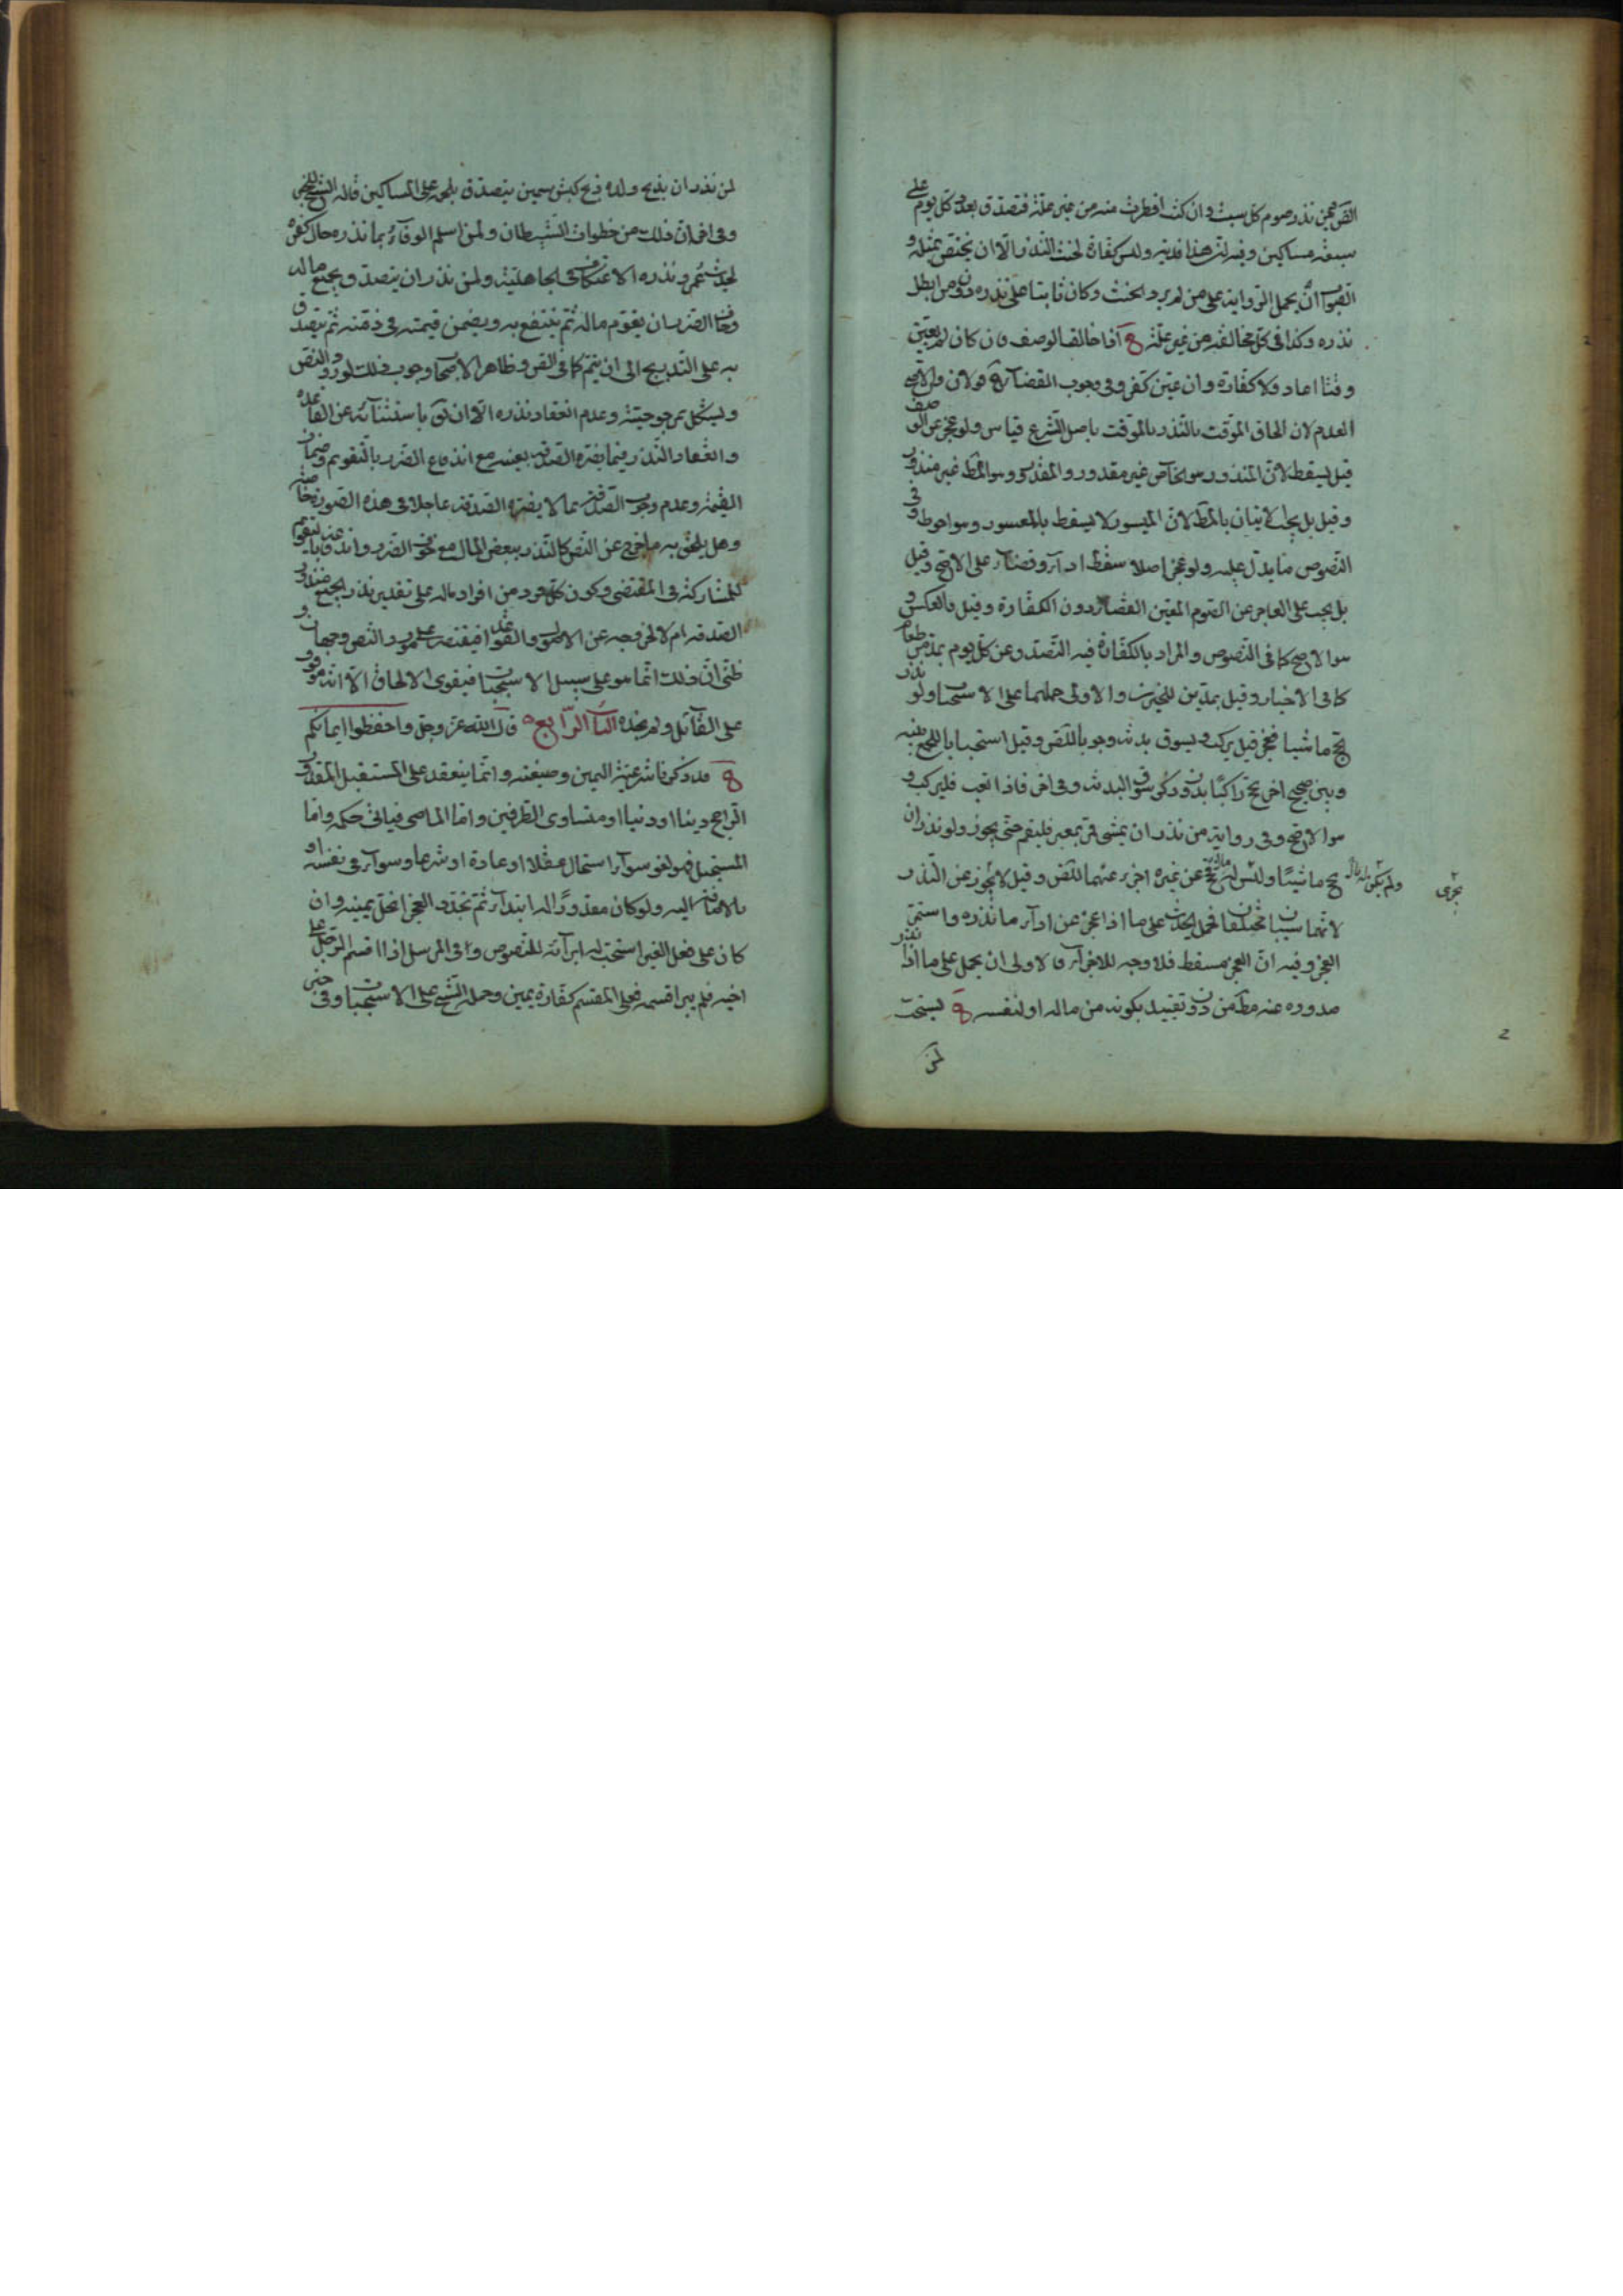 الصّ فيمن نذر صوم كل سبت وان كنت افطرت منه من غير علة فتصدق بعدد كل يوم على
سبعة مساكين وفيه ان هذا فدية وليس كفارة لحنث النذر الا ان يختص بمثله و
الصواب ان يحمل الرواية على من لم يرد الحنث وكان ثابتا على نذره دون من ابطل
نذره وكذا في كل مخالفة من غير علة ق اذا خالف الوصف فان كان لم يعين
وقتا اعاد ولا كفارة وان عين كفر وفي وجوب القضاء قولان والاصح
العدم لان الحاق الموقت بالنذر بالموقت باصل الشرع قياس ولو عجز عن الوصف
قيل يسقط لان المنذور هو الخاص غير مقدور والمقدور وهو المط غير منذور
وقيل بل يجب الاتيان بالمط لان الميسور لا يسقط بالمعسور وهو احوط وفي
النصوص ما يدل عليه ولو عجز اصلا سقط اداء وقضاء على الاصح وقيل
بل يجب على العاجز عن الصوم المعين القضاء دون الكفارة وقيل بالعكس و
هو الاصح كما في النصوص والمراد بالكفارة فيه التصدق عن كل يوم بمد من طعام
كما في الاخبار وقيل بمدين للخبرين والاولى حملهما على الاستحباب ولو نذر
حج ماشيا فعجز قيل يركب ويسوق بدنة وجوبا للنص وقيل استحبابا للجمع بينه
وبين صحيح اخر حج راكبا بدون ذكر سوق البدنة وفي اخر فاذا تعب فليركب و
هو الاصح وفي رواية من نذر ان يمشي فمر بمعبر فليقم حتى يجوز ولو نذر ان
يحج ماشيا وليس له مال فحج عن غيره اجزء عنهما للنص وقيل لا يجوز عن النذر
ولم يكن له مال
يجزى
لانهما سببان مختلفان فحمل الحديث على ما اذا عجز عن اداء ما نذره واستمر
العجز وفيه ان العجز مسقط فلا وجه للاجزاء فالاولى ان يحمل على ما اذا نذر
صدوره عنه مط من دون تقييد بكونه من ماله او لنفسه ق يستحب
لمن
لمن نذر ان يذبح ولده ذبح كبش سمين يتصدق بلحمه على المساكين قاله الشيخ للخبر
وفي اخر ان ذلك من خطوات الشيطان ولمن اسلم الوفاء بما نذره حال كفره
لحديث عمر ونذره الاعتكاف في الجاهلية ولمن نذر ان يتصدق بجميع ماله
وخاف الضرر ان يقوم ماله ثم ينتفع به ويضمن قيمته في ذمته ثم يتصدق
به على التدريج الى ان يتم كما في النص وظاهر الاصحاب وجوب ذلك لورود النص
ويشكل بمرجوحيته وعدم انعقاد نذره الا ان نقول باستثنائه عن القاعدة
وانعقاد النذر فيما يضره الصدقة بعينه مع اندفاع الضرر بالتقويم وضمان
القيمة وعدم وجوب الصدقة بما لا يضره الصدقة عاجلا في هذه الصورة خاصة
وهل يلحق به ما خرج عن النص كالنذر ببعض المال مع خوف الضرر واندفاعه بالتقويم
للمشاركة في المقتضي وكون كل فرد من افراد ماله على تقدير نذر الجميع منذور
الصدقة ام لا لخروجه عن الاصول والقواعد فيقتصر على مورد النص وجهان و
ظني ان ذلك انما هو على سبيل الاستحباب فيقوى الالحاق الا انه موقوف
على القائل ولم نجده الباب الرابع قال الله عز وجل واحفظوا ايمانكم
ق قد ذكرنا شرعية اليمين وصيغته وانما ينعقد على المستقبل المقدور
الراجح دينا او دنيا او متساوي الطرفين واما الماضي فيأتي حكمه واما
المستحيل فهو لغو سواء استحال عقلا او عادة او شرعا وسواء في نفسه او
بالاضافة اليه ولو كان مقدورا له ابتداء ثم تجدد العجز انحل يمينه وان
كان على فعل الغير استحب له ابراءه للنصوص وفي المرسل اذا اقسم الرجل على
اخيه فلم يبر اقسمه فعلى المقسم كفارة يمين وحمله الشيخ على الاستحباب وفي خبر